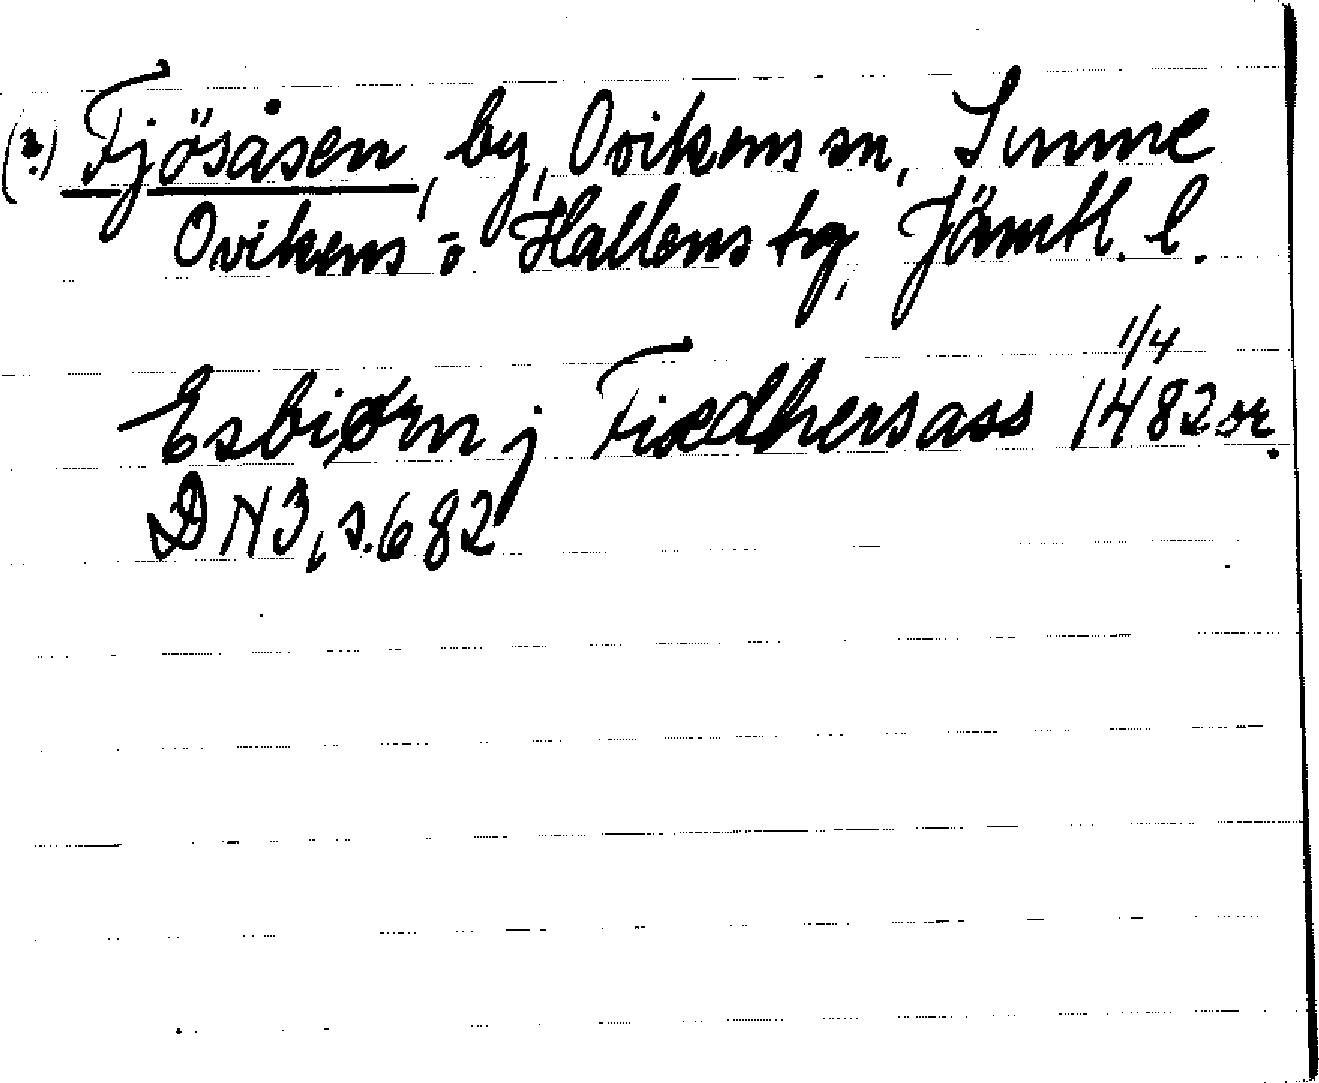 (2.) Fjösåsen, by, Ovikens sn, Sunne
Ovikens o Hallens tg, Jämtl. l.
1/4
Esbiørn j Fiædhersass 1482 or.
DN3, s. 682